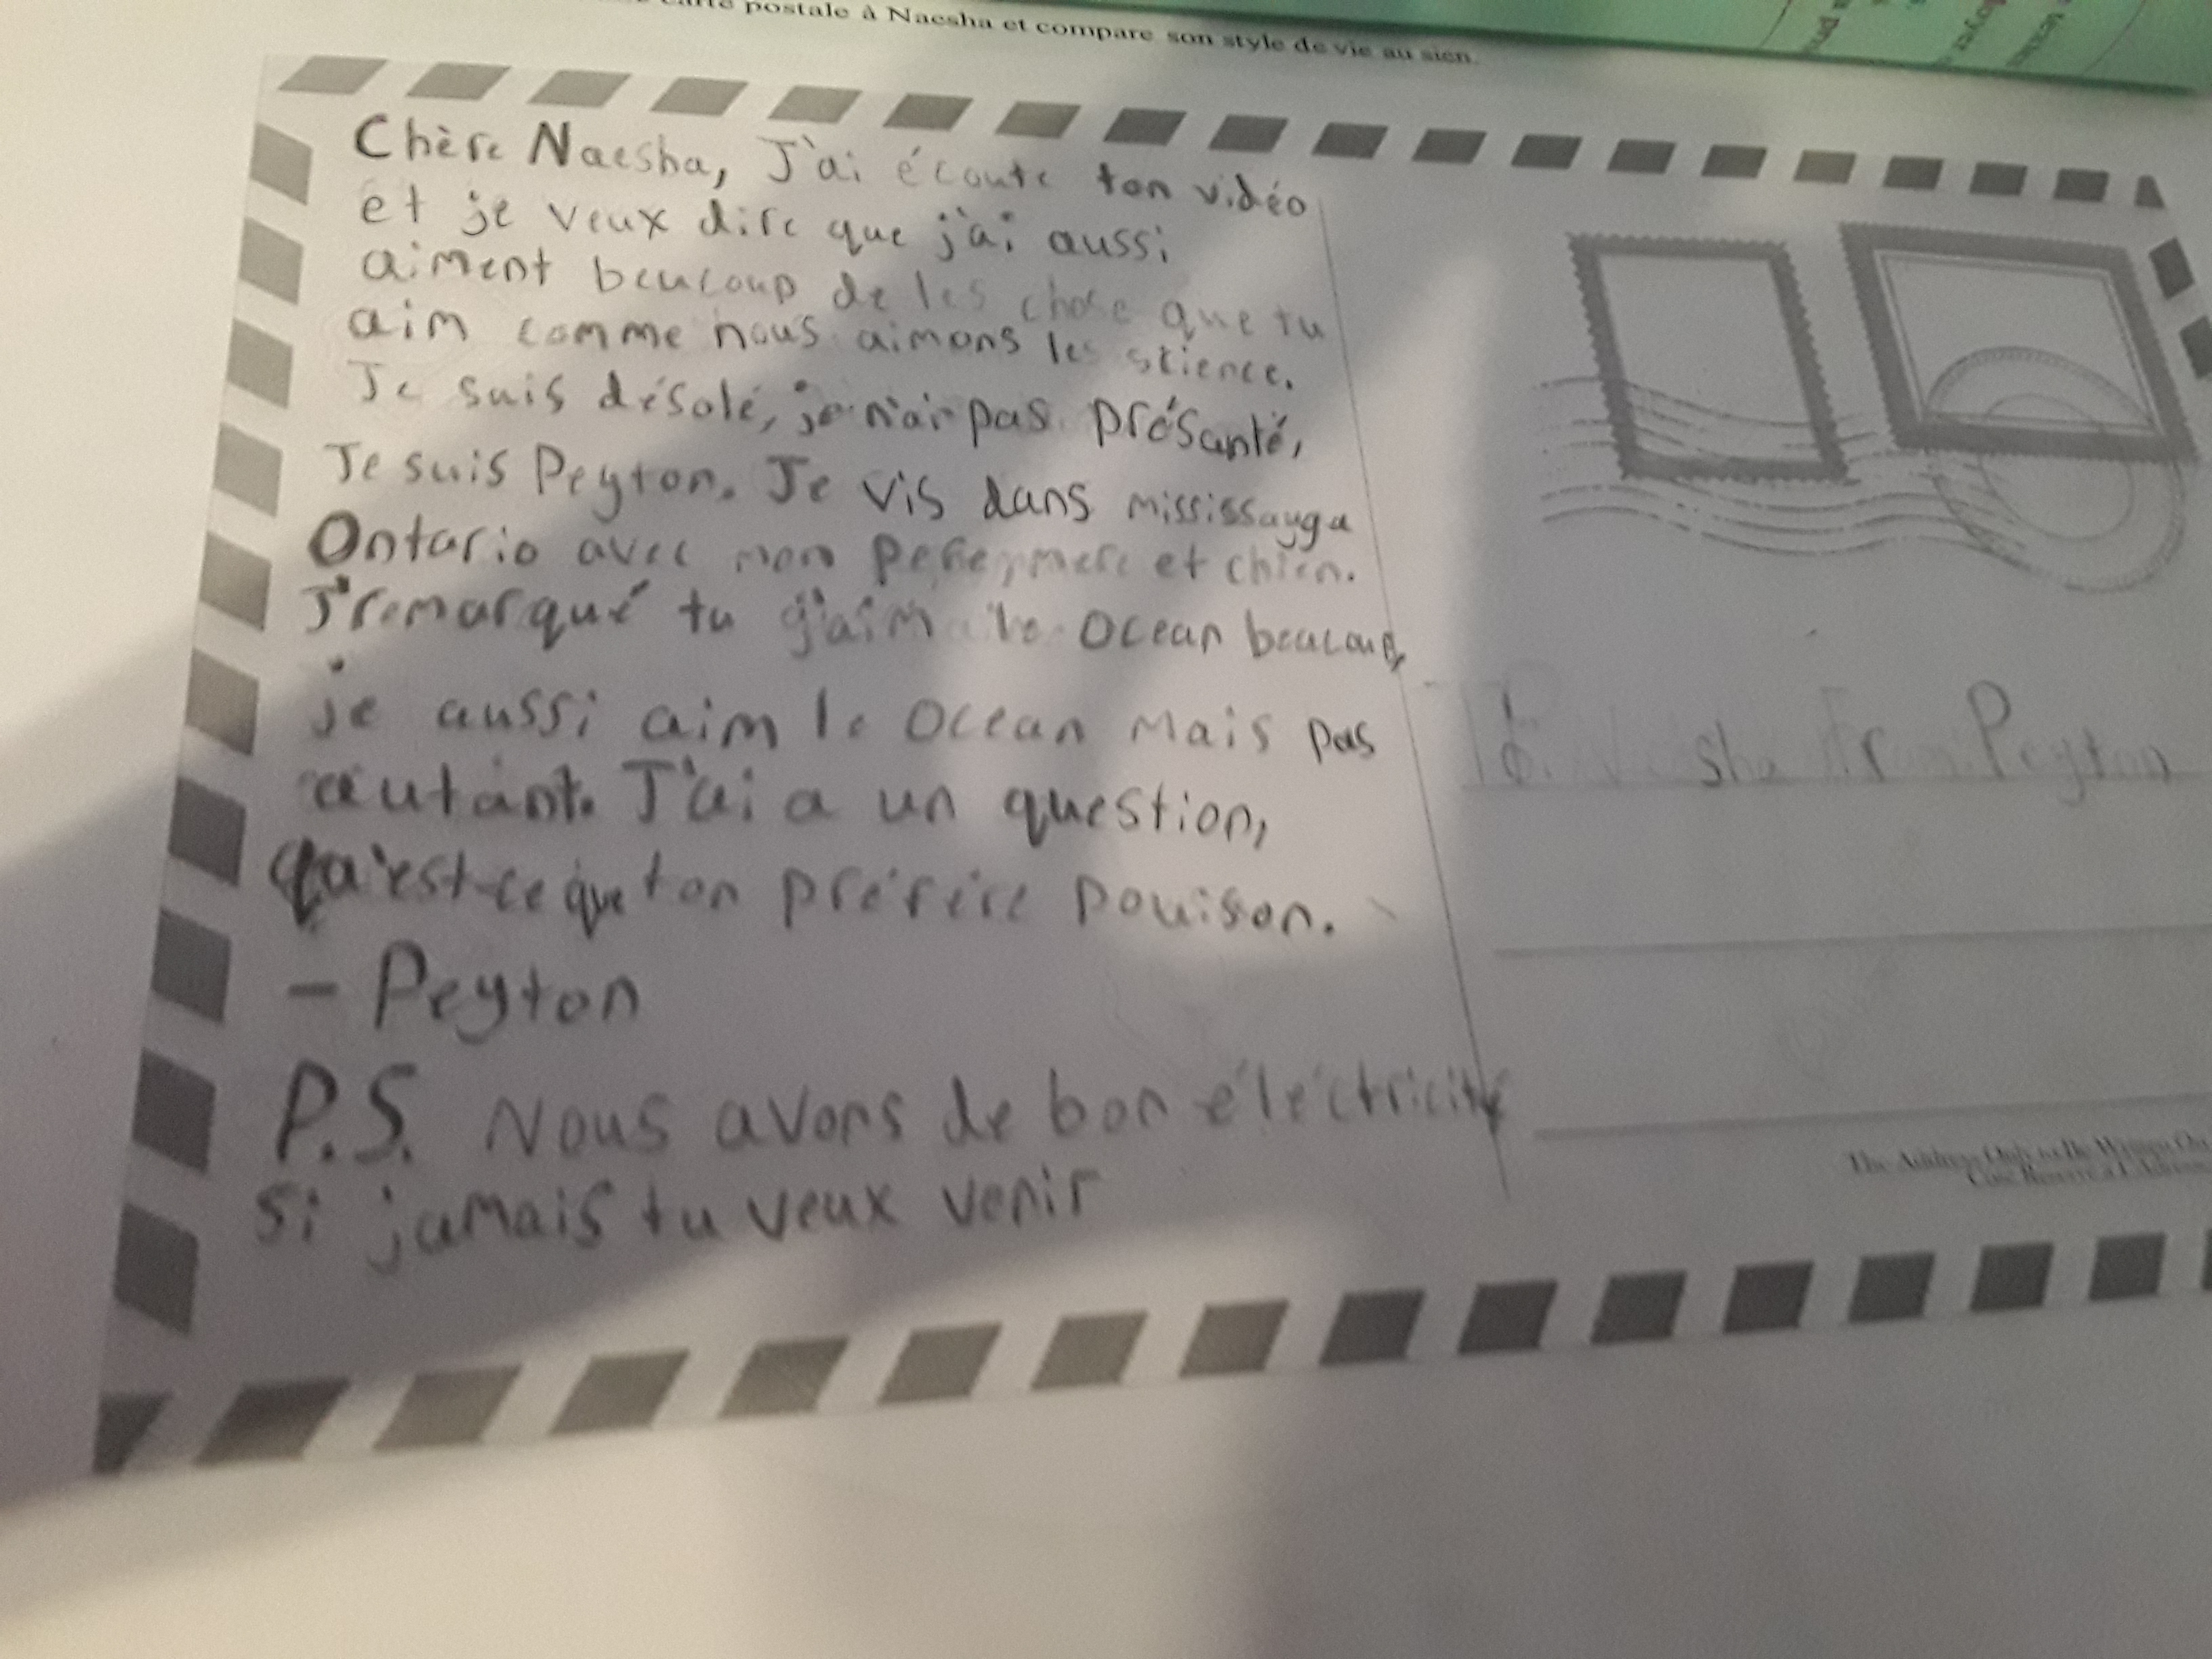 carte postale à Naesha et compare son style de vie au sien.
Chère Naesha, J'ai écoute ton vidéo
et je veux dire que j'ai aussi
aiment beucoup de les chose que tu
aim comme nous aimons les stience.
Je suis désolé, je n'ai pas présanté,
Je suis Peyton. Je vis dans mississauga
Ontario avec mon pere, mere et chien.
J'remarqué tu j'aim le ocean beaucoup,
je aussi aim le ocean mais pas
autant. J'ai a un question,
qu'est-ce que ton préféré pouison.
- Peyton
P.S. Nous avons de bon éléctricité
si jamais tu veux venir
To Naesha From Peyton
The Address Only to Be Written On